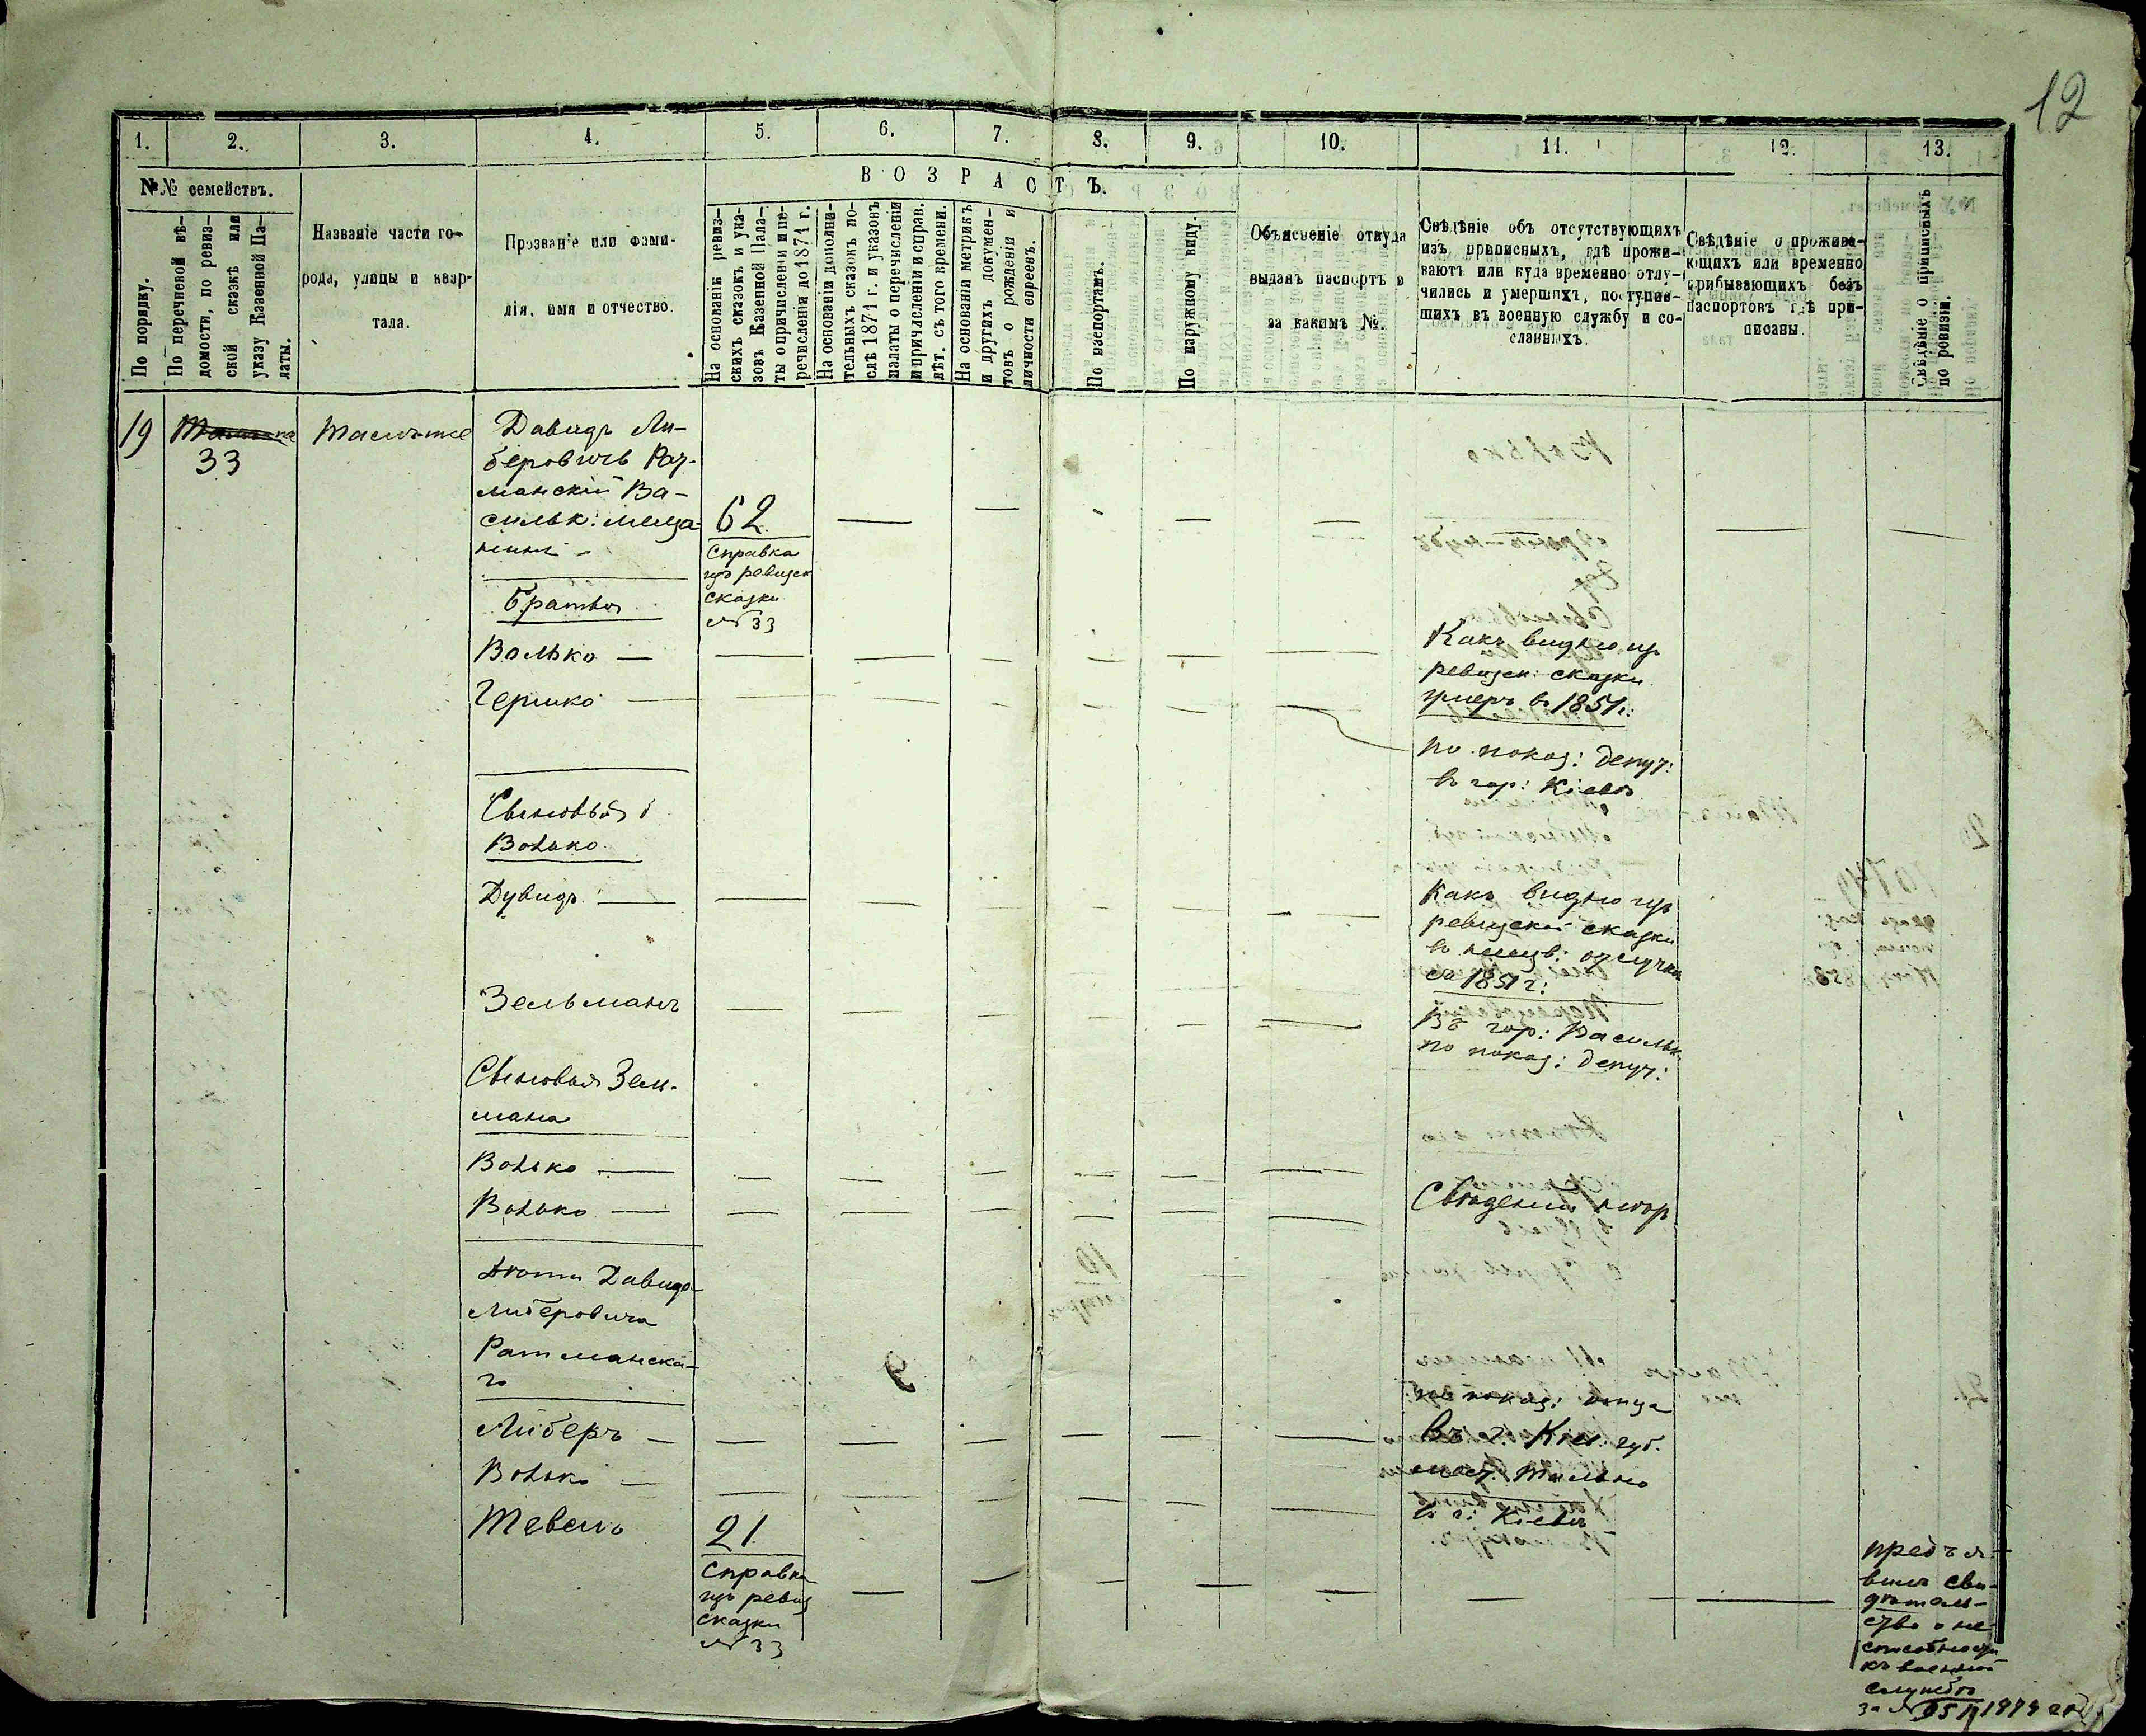 12
1. 2. 3. 4. 5. 6. 7. 8. 9. 10. 11. 12. 13.
№№ семействъ.
По порядку.
По перечневой вѣ-
домости, по ревиз-
ской сказкѣ или
указу Казенной Па-
латы.
Названіе части го-
рода, улицы и квар-
тала.
Прозваніе или фами-
лія, имя и отчество.
ВОЗРАСТЪ.
На основаніи ревиз-
скихъ сказокъ и ука-
зовъ Казенной Пала-
ты о причисленіи и пе-
речисленіи до 1871 г.
На основаніи дополни-
тельныхъ сказокъ по-
слѣ 1871 г. и указовъ
палаты о перечисленіи
и причисленіи и справ.
лѣт. съ того времени.
На основаніи метрикъ
и другихъ докумен-
товъ о рожденіи и
личности евреевъ.
По паспортамъ.
По наружному виду.
Объясненіе откуда
выданъ паспортъ и
за какимъ №.
Свѣдѣніе объ отсутствующихъ
изъ приписныхъ, гдѣ прожи-
ваютъ или куда временно отлу-
чились и умершихъ, поступив-
шихъ въ военную службу и со-
сланныхъ.
Свѣдѣніе о прожива-
ющихъ или временно
прибывающихъ безъ
паспортовъ гдѣ при-
писаны.
Свѣдѣніе о приписныхъ
по ревизіи.
19
33
Давидъ Ли-
беровичъ Рат-
манскій Ва-
сильк: мѣща-
нинъ
62
справка
изъ ревизск
сказки
№ 33
Братья
Волько
Гершко
Какъ видно изъ
ревизск: сказки
умеръ въ 1851г:
по показ: депут:
въ гор: Кіевѣ
Сыновья
Волько
Дувидъ
Какъ видно изъ
ревизской сказки
въ неизв: отлучкѣ
съ 1851 г:
Зельманъ
Въ гор: Васильк
по показ: депут:
Сыновья Зель-
мана
Волько
Волько
Дѣти Давида
Либеровича
Ратманска-
го
Либеръ
по показ: отца
Въ г. Кіев. губ.
мѣст. Тально
Волько
въ г: Кіевѣ
Тевель
21
справка
изъ ревиз
сказки
№ 33
предъя-
вилъ сви-
дѣтель-
ство о не-
способности
къ военной
службѣ